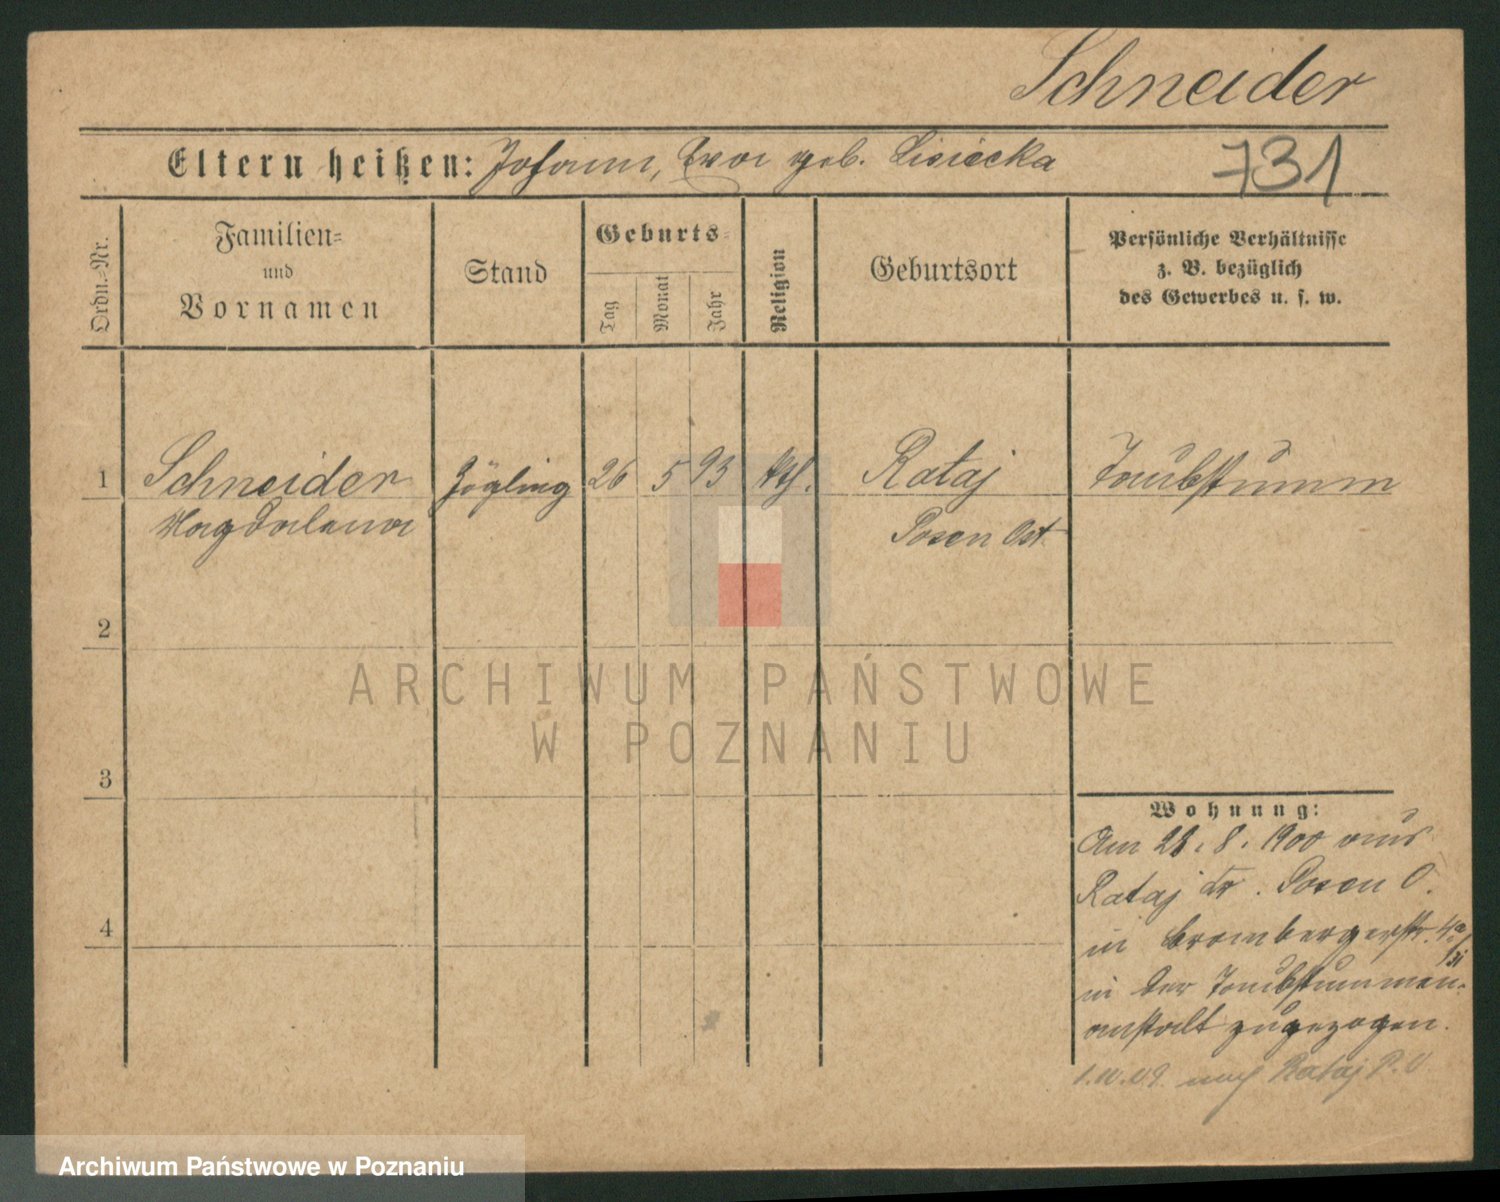 Schneider
Eltern heißen: Johann, Eva geb. Lisiecka
731
Ordn.-Nr.
Familien-
und
Vornamen
Stand
Geburts-
Tag
Monat
Jahr
Religion
Geburtsort
Persönliche Verhältnisse
z. B. bezüglich
des Gewerbes u. s. w.
1
Schneider
Magdalena
Zögling
26
5
93
kth.
Rataj
Posen Ost
Taubstumm
2
3
4
Wohnung:
Am 28. 8. 1900 aus
Rataj Kr. Posen O.
in Brombergerstr. 4a
in der Taubstummen-
anstalt zugezogen.
nach Rataj P. O.
ARCHIWUM PAŃSTWOWE
W POZNANIU
Archiwum Państwowe w Poznaniu